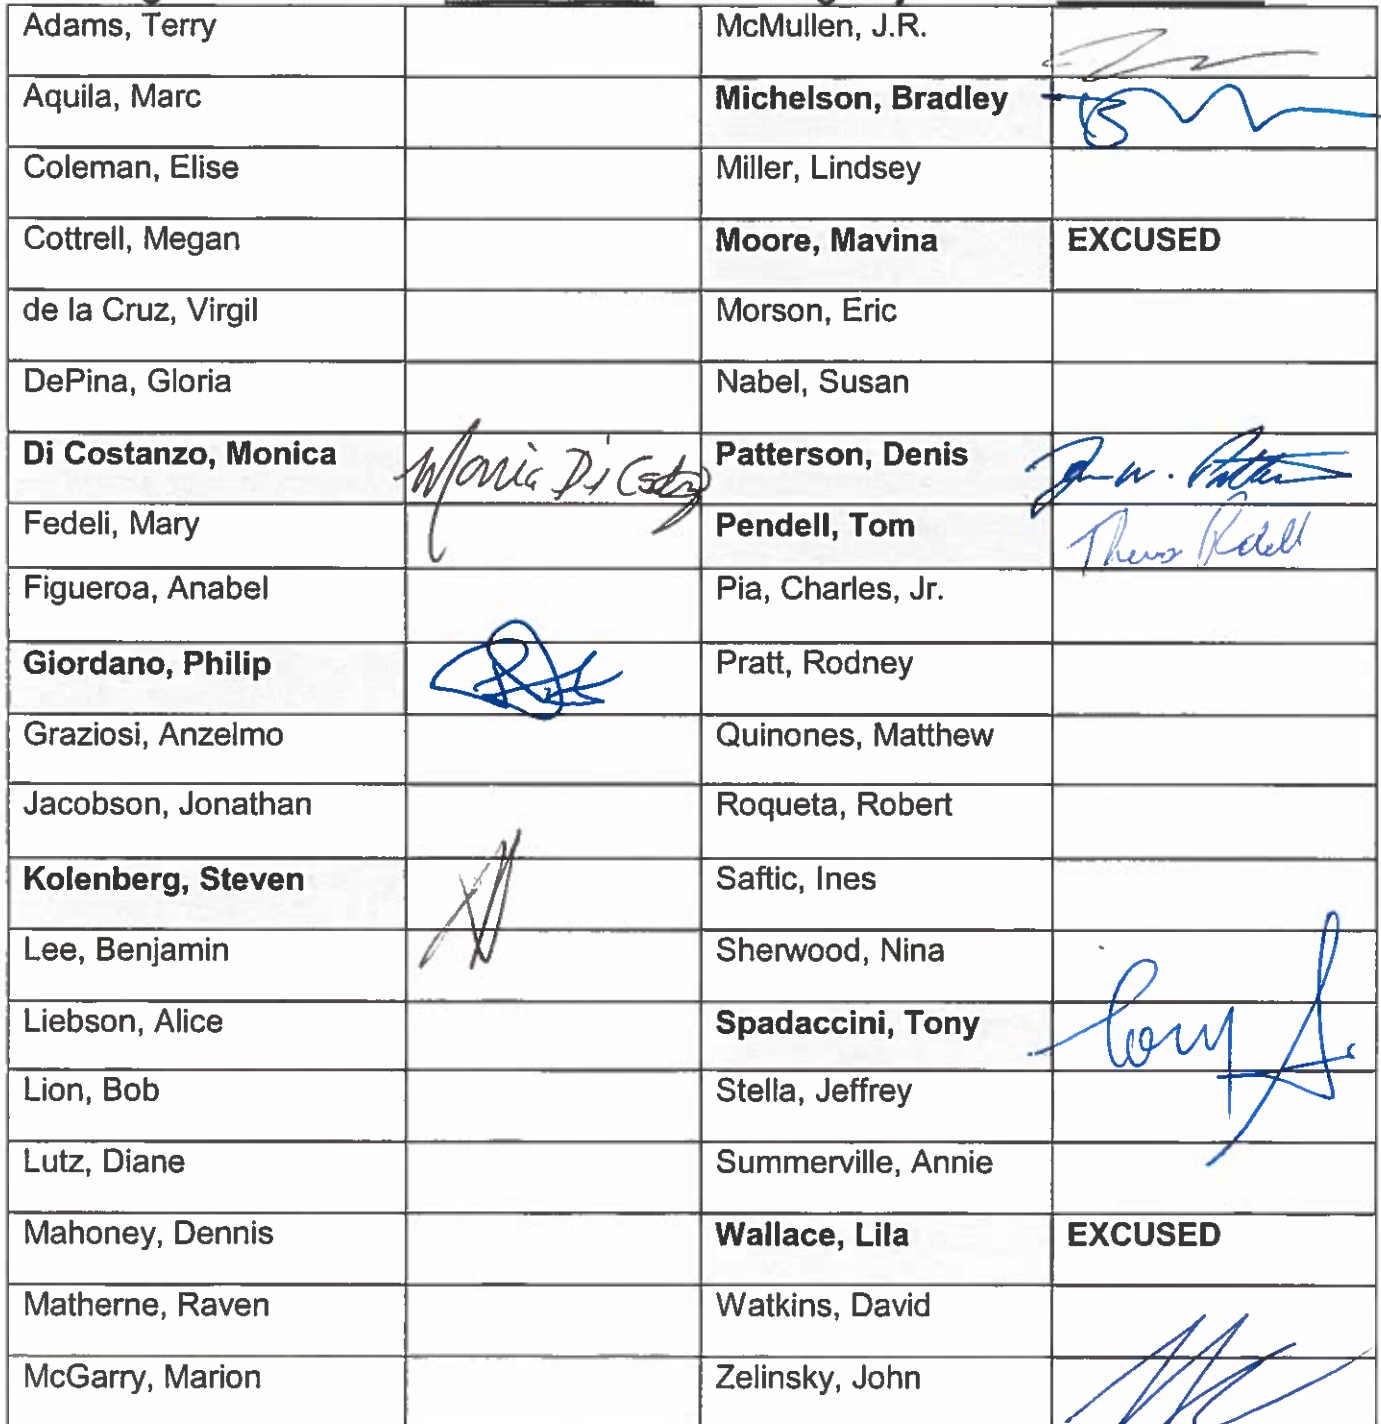 Adams, Terry McMullen, J.R.
Aquila, Marc Michelson, Bradley
Coleman, Elise Miller, Lindsey
Cottrell, Megan Moore, Mavina EXCUSED
de la Cruz, Virgil Morson, Eric
DePina, Gloria Nabel, Susan
Di Costanzo, Monica Patterson, Denis
Fedeli, Mary Pendell, Tom
Figueroa, Anabel Pia, Charles, Jr.
Giordano, Philip Pratt, Rodney
Graziosi, Anzelmo Quinones, Matthew
Jacobson, Jonathan Roqueta, Robert
Kolenberg, Steven Saftic, Ines
Lee, Benjamin Sherwood, Nina
Liebson, Alice Spadaccini, Tony
Lion, Bob Stella, Jeffrey
Lutz, Diane Summerville, Annie
Mahoney, Dennis Wallace, Lila EXCUSED
Matherne, Raven Watkins, David
McGarry, Marion Zelinsky, John